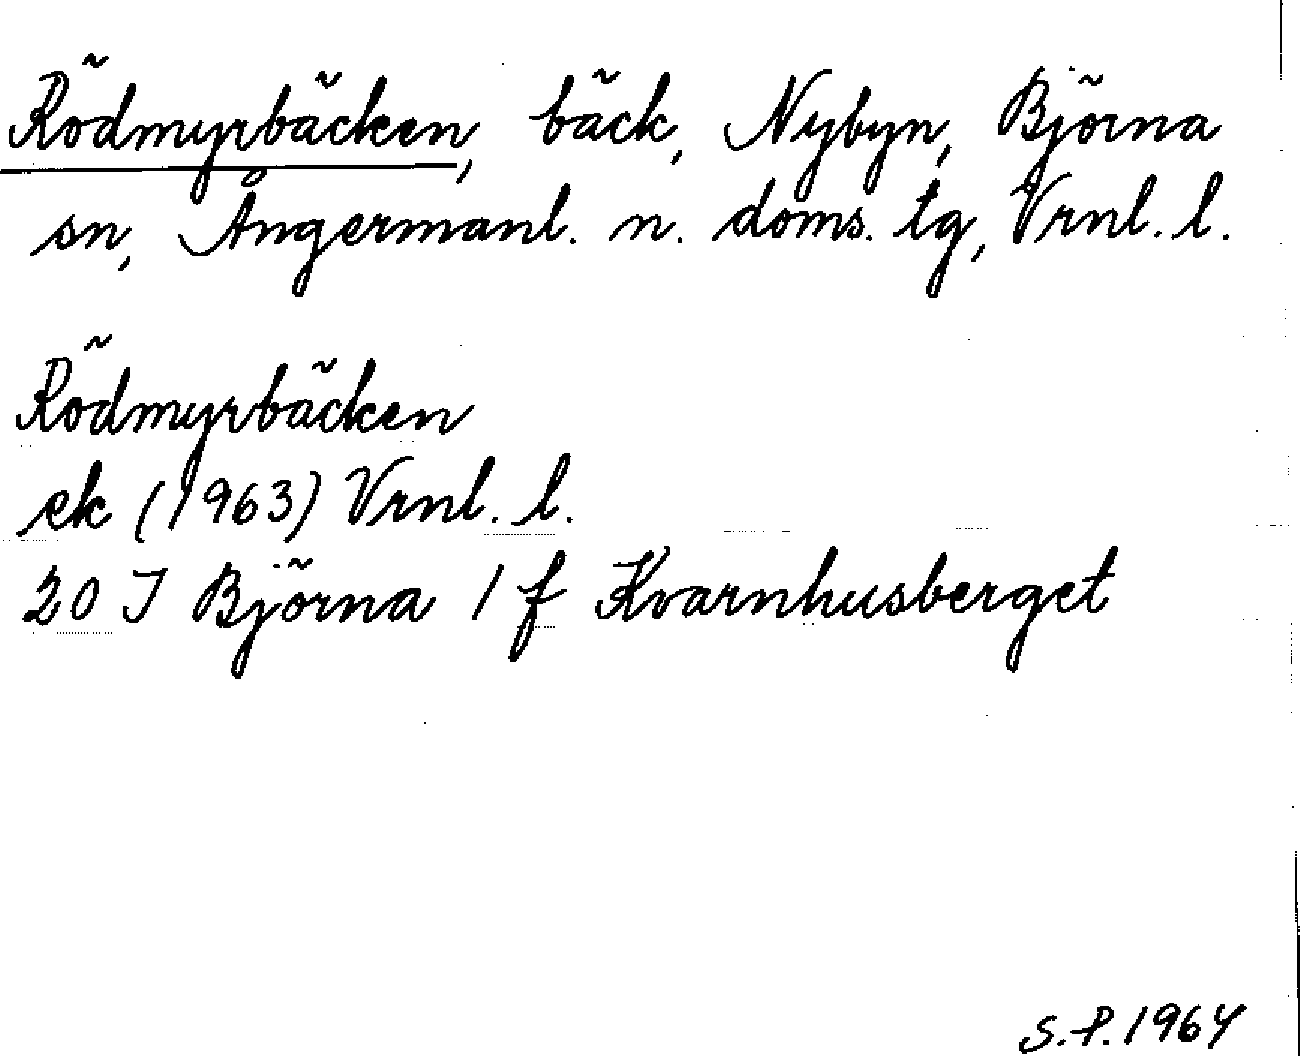 Rödmyrbäcken, bäck, Nybyn, Björna
sn, Ångermanl. n. doms. tg, Vrnl. l.
Rödmyrbäcken
ek (1963) Vrnl. l.
20 I Björna 1 f Kvarnhusberget
S.P. 1964